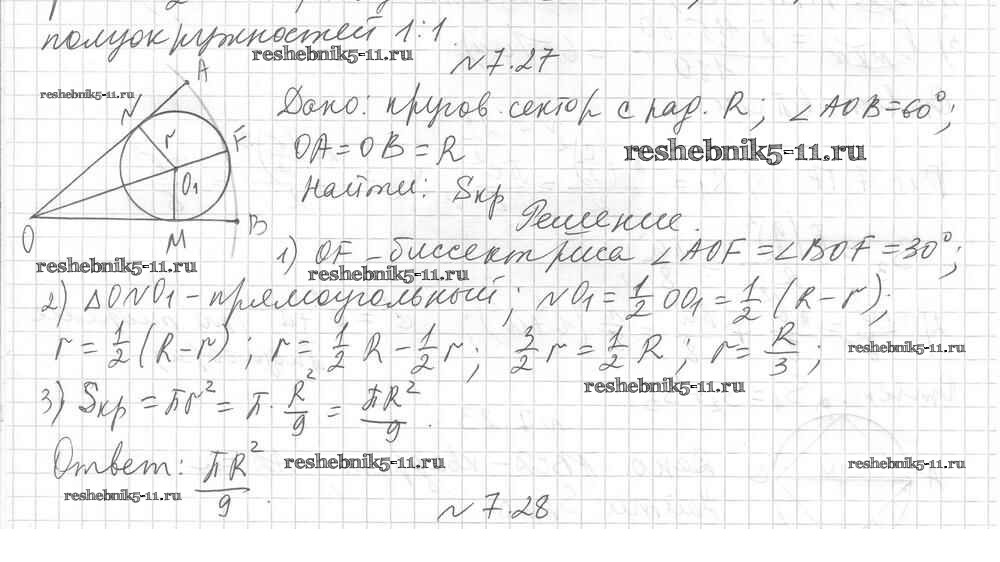 полуокружностей 1:1.
reshebnik5-11.ru
№7.27
A
reshebnik5-11.ru
N
r
F
O₁
O
M
B
Дано: кругов. сектор с рад. R; ∠AOB=60°;
OA=OB=R
reshebnik5-11.ru
Найти: Sкр
Решение.
1) OF - биссектриса ∠AOF=∠BOF=30°;
reshebnik5-11.ru
reshebnik5-11.ru
2) △ONO₁ - прямоугольный; NO₁=1/2 OO₁=1/2 (R-r);
r=1/2(R-r); r=1/2 R-1/2 r; 3/2 r=1/2 R; r=R/3;
reshebnik5-11.ru
reshebnik5-11.ru
3) Sкр=πr²=π·R²/9=πR²/9.
Ответ: πR²/9.
reshebnik5-11.ru
reshebnik5-11.ru
reshebnik5-11.ru
№7.28